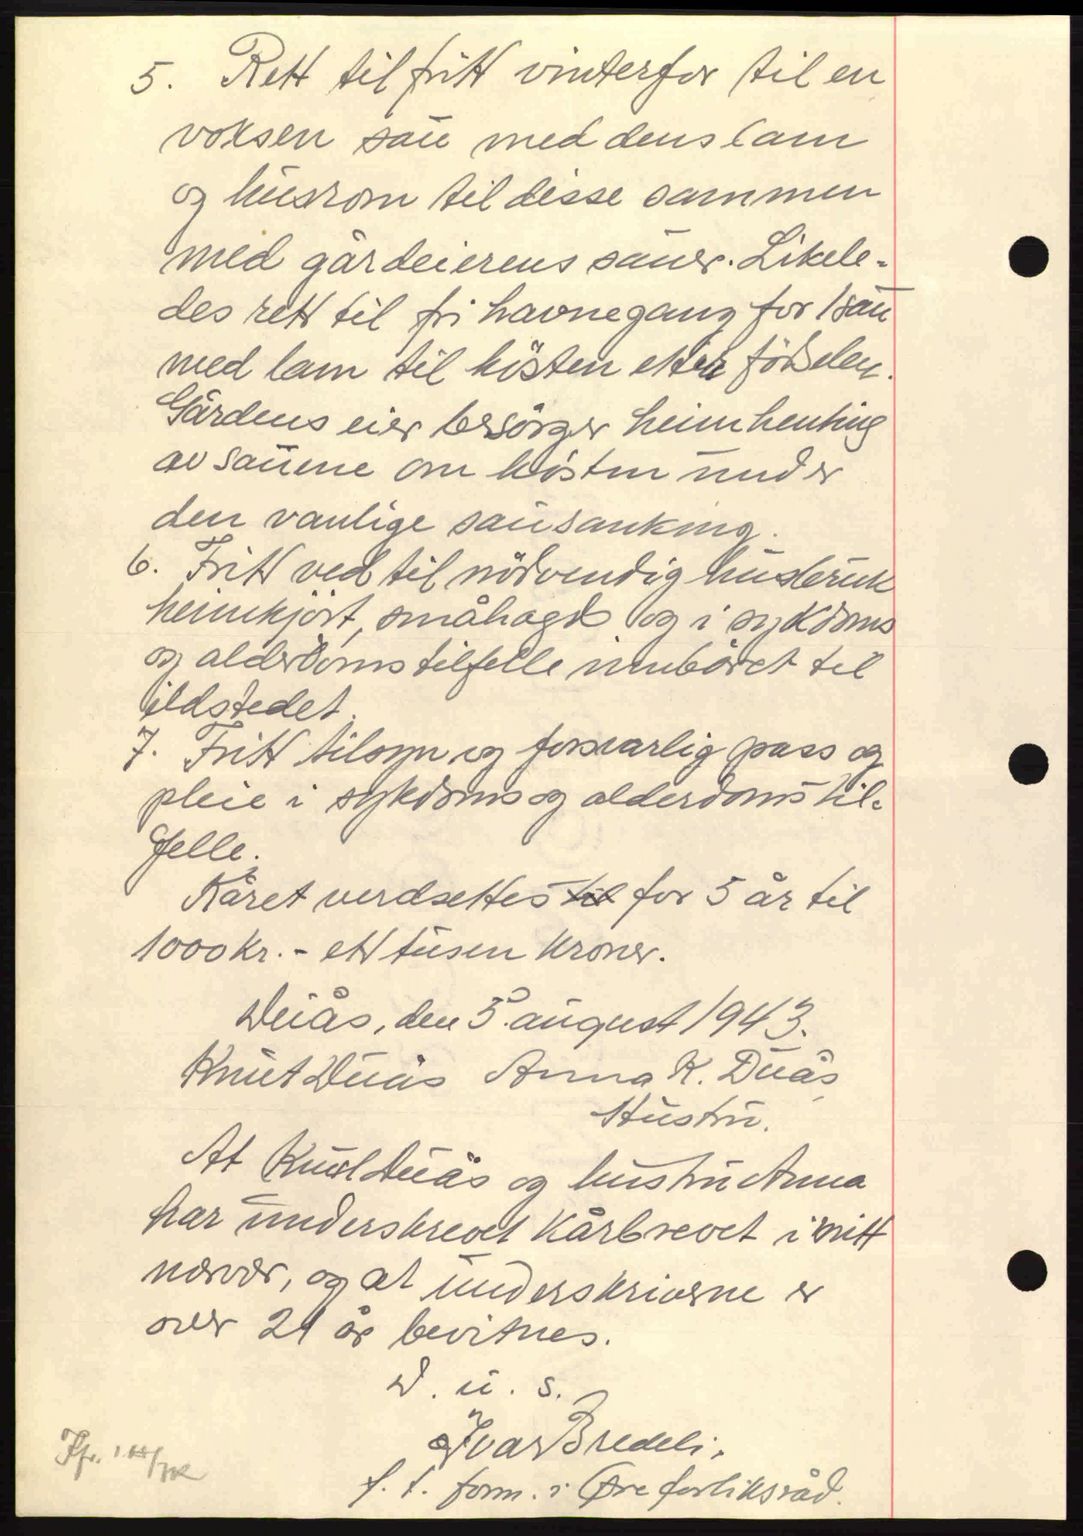 5. Rett til fritt vinterfor til en
voksen sau med dens lam
og husrom til disse sammen
med gårdeierens sauer. Likele-
des rett til fri havnegang for 1 sau
med lam til hösten etter födselen.
Gårdens eier besörger heimhenting
av sauene om hösten under
den vanlige sausanking.
6. Fritt ved til nödvendig husbruk
heimkjört, småhogd og i sykdoms
og alderdomstilfelle innbåret til
ildstedet.
7. Fritt tilsyn og forsvarlig pass og
pleie i sykdoms og alderdoms til-
felle.
Kåret verdsettes til for 5 år til
1000 kr. - ett tusen kroner.
Duås, den 5. august 1943.
Knut Duås Anna K. Duås
Hustru.
At Knut Duås og hustru Anna
har underskrevet kårbrevet i mitt
nærvær, og at underskriverne er
over 21 år bevitnes.
D. u. s.
Ivar Bredeli.
f. t. form. i Öre forliksråd.